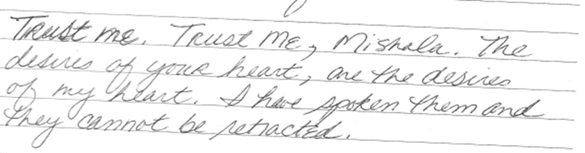 Trust me. Trust Me, Mishala. The
desires of your heart, are the desires
of my heart. I have spoken them and
they cannot be retracted.